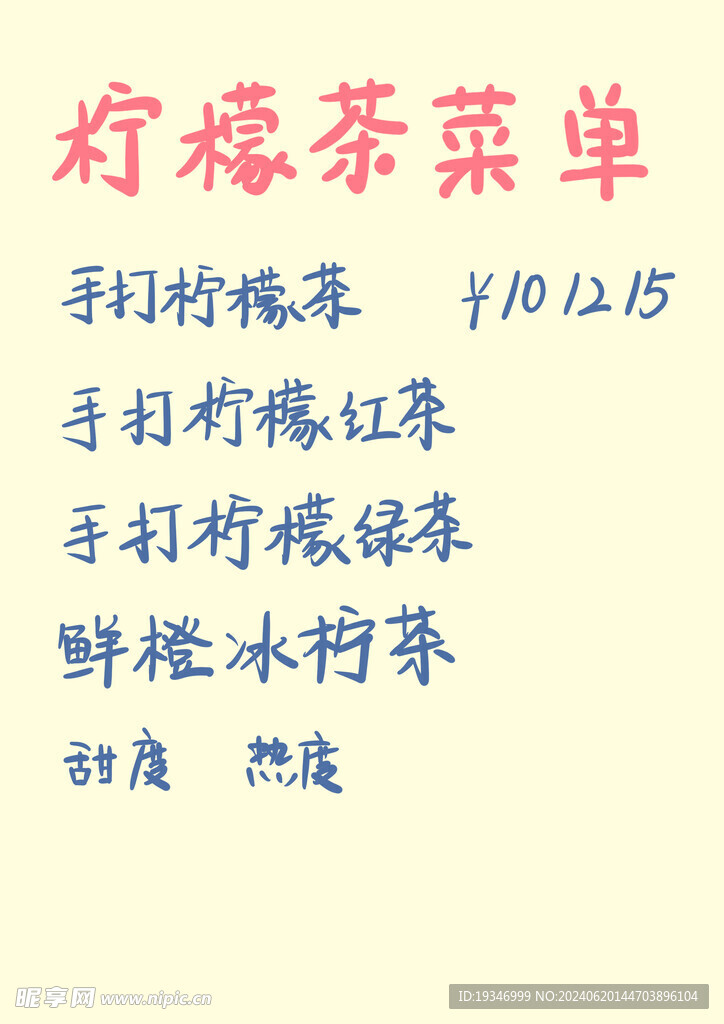 柠檬茶菜单
手打柠檬茶 ¥10 12 15
手打柠檬红茶
手打柠檬绿茶
鲜橙冰柠茶
甜度 热度
昵享网 www.nipic.cn
ID:19346999 NO:20240620144703896104